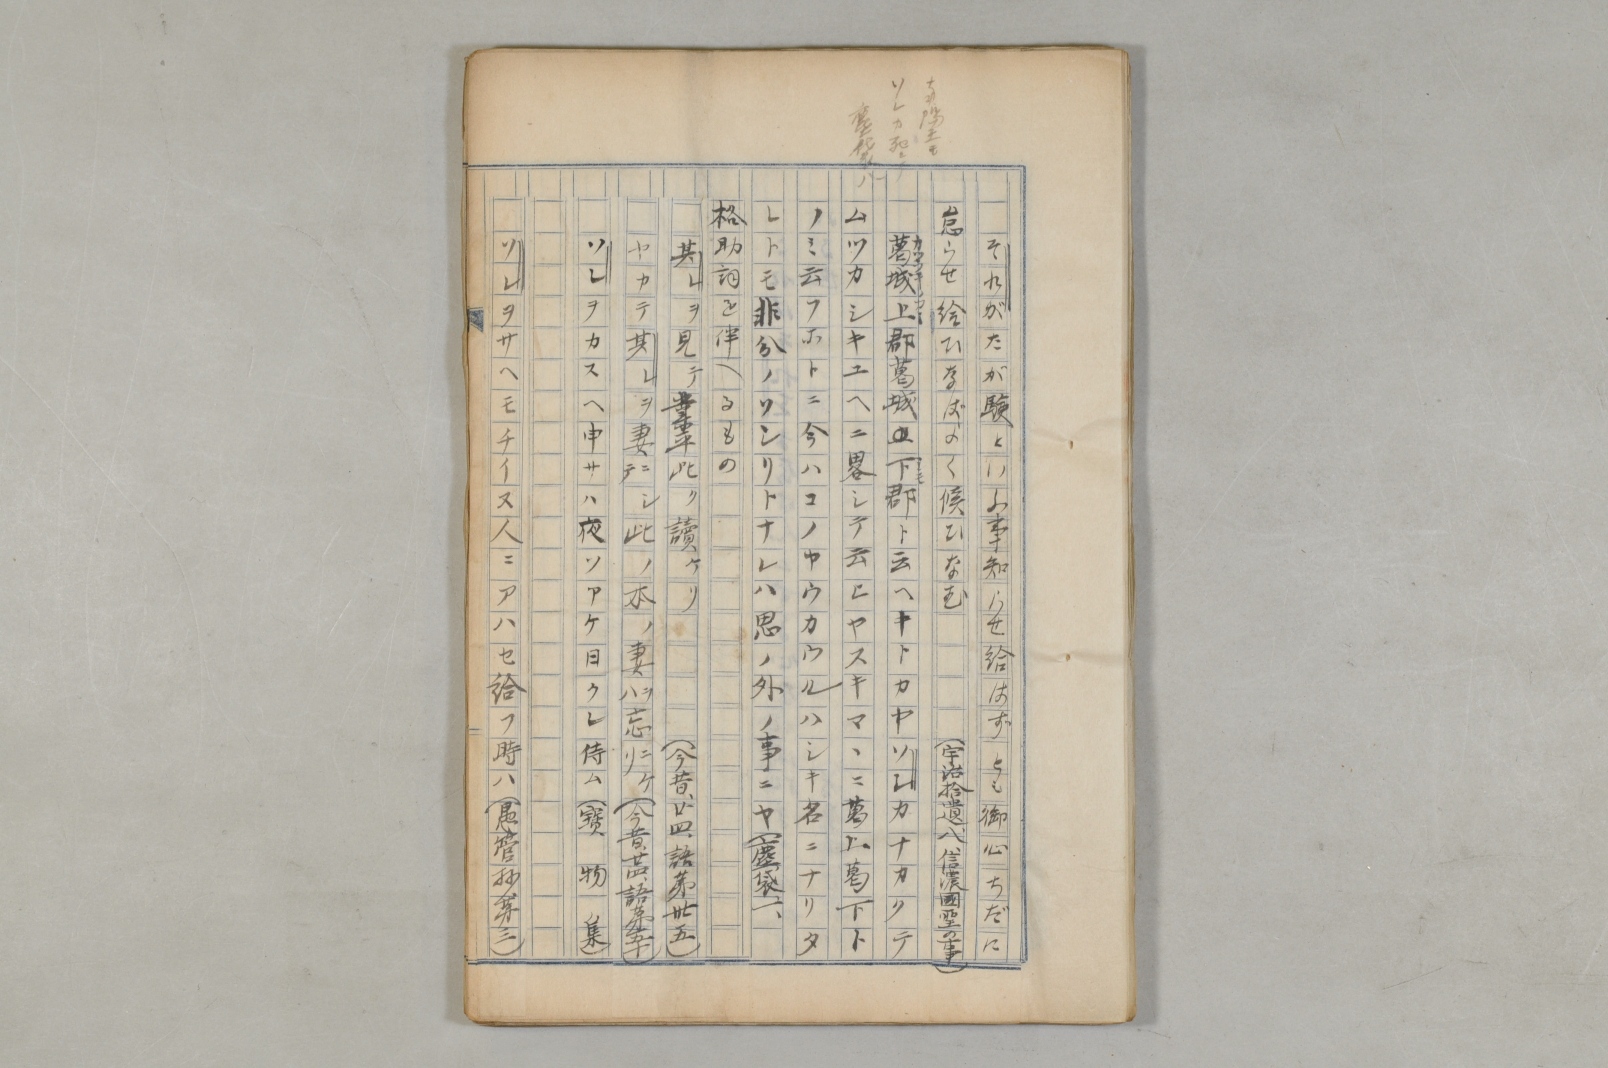 それがたが験といふ事知らせ給はずとも御心ちだに
怠らせ給ひなばよく候ひなむ(宇治拾遺八、信濃國聖の事)
葛城上郡葛城下郡ト云ヘキトカヤソレカナカクテ
ムツカシキユヘニ畧シテ云ヒヤスキマヽニ葛上葛下ト
ノミ云フホトニ今ハコノヤウカウルハシキ名ニナリタ
レトモ非分ノソシリトナレハ思ノ外ノ事ニヤ(塵袋一、
格助詞を伴へるもの
其レヲ見テ 此ク讀ケリ(今昔、廿四、語第卅五)
ヤカテ其レヲ妻ニシテ此ノ本ノ妻ヲハ忘ニケリ(今昔、 語第 )
ソレヲカスヘ申サハ夜ソアケ日クレ侍ム(寶物集)
ソレヲサヘモチイヌ人ニアハセ給フ時ハ(愚管抄第三)